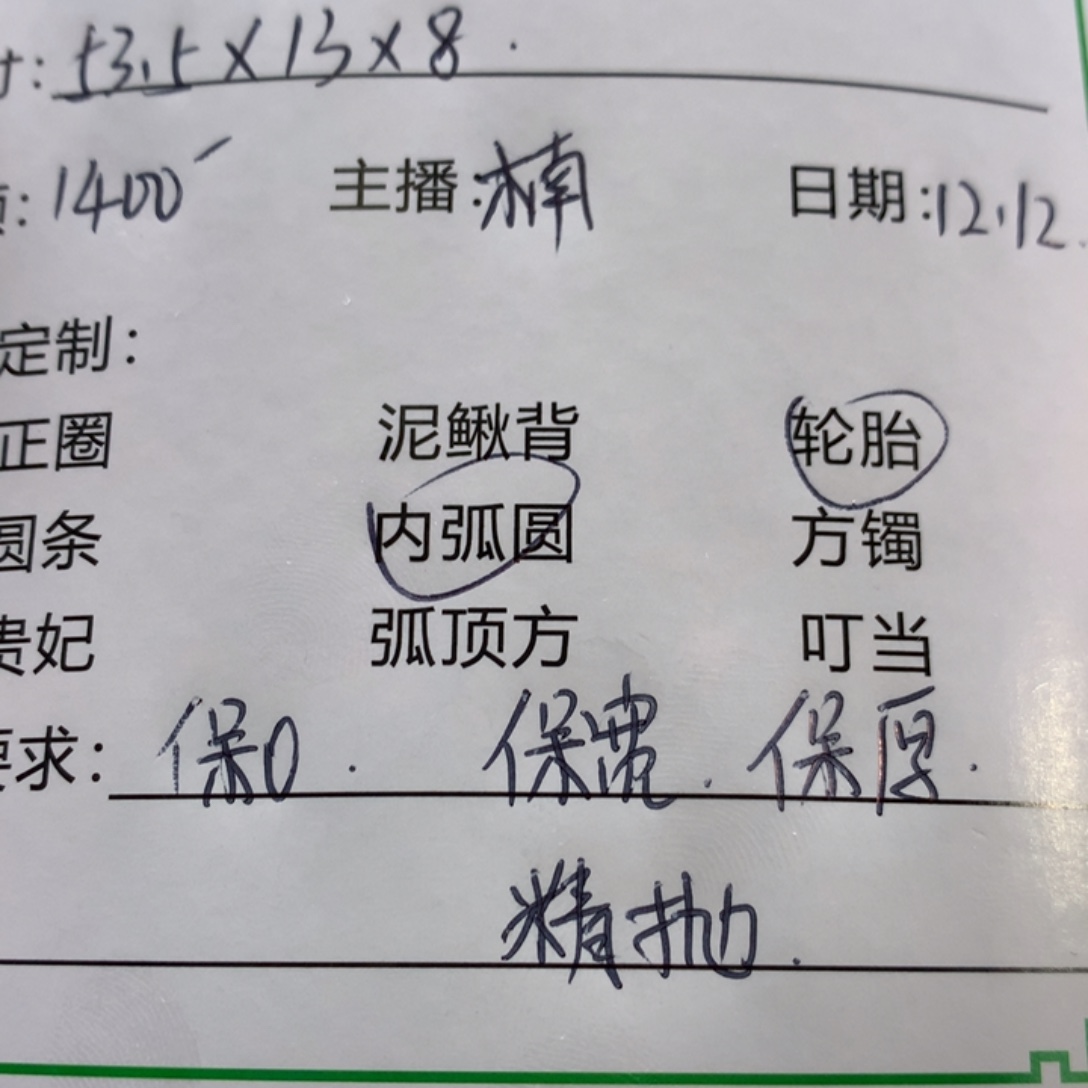 寸: 53.5×13×8.
页: 1400 主播: 楠 日期: 12.12.
定制:
正圈 泥鳅背 轮胎
圆条 内弧圆 方镯
贵妃 弧顶方 叮当
要求: 保口. 保宽. 保厚.
精抛.